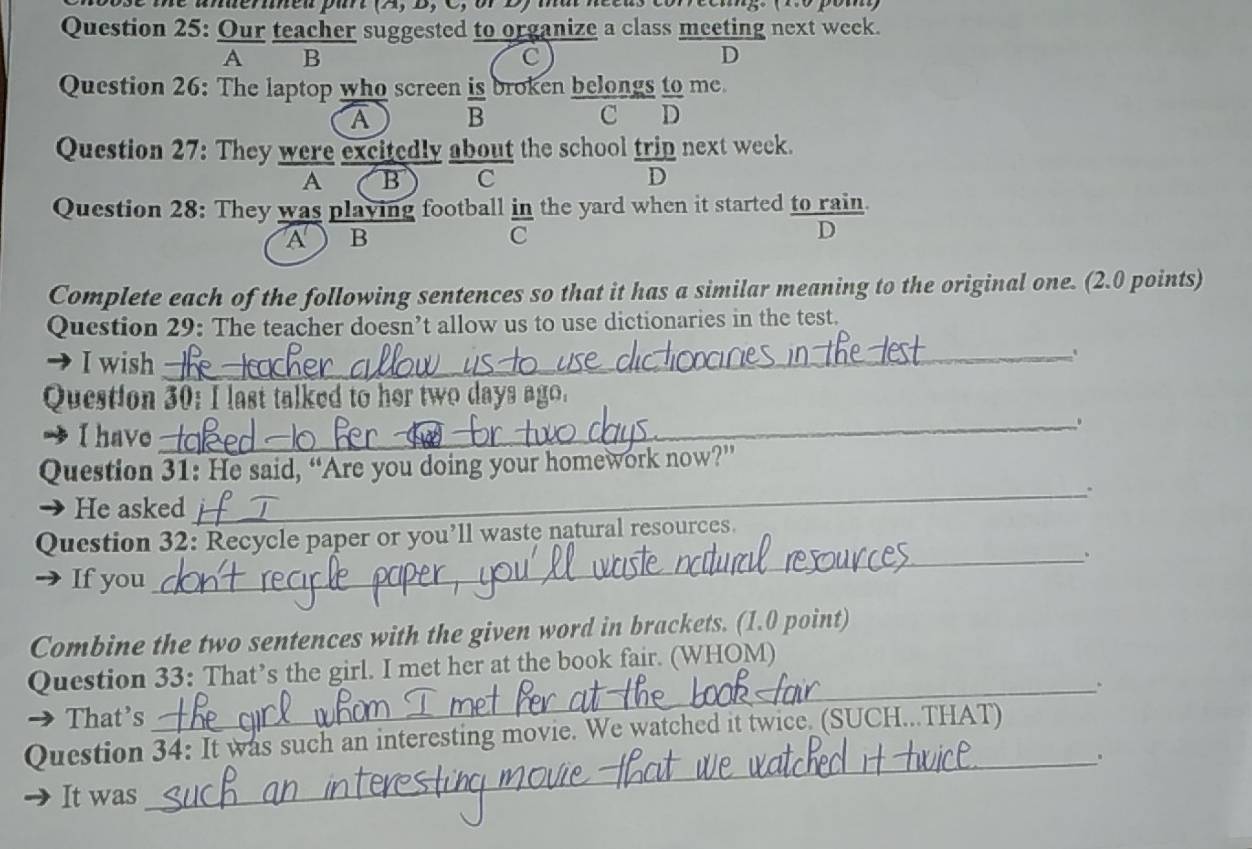 Choose the underlined part (A, B, C, or D) that needs correcting. (1.0 point)
Question 25: Our teacher suggested to organize a class meeting next week.
A B C D
Question 26: The laptop who screen is broken belongs to me.
A B C D
Question 27: They were excitedly about the school trip next week.
A B C D
Question 28: They was playing football in the yard when it started to rain.
A B C D
Complete each of the following sentences so that it has a similar meaning to the original one. (2.0 points)
Question 29: The teacher doesn't allow us to use dictionaries in the test.
→ I wish the teacher allow us to use dictionaries in the test.
Question 30: I last talked to her two days ago.
→ I have talked to her for two days.
Question 31: He said, “Are you doing your homework now?”
→ He asked if I.
Question 32: Recycle paper or you'll waste natural resources.
→ If you don't recycle paper, you'll waste natural resources.
Combine the two sentences with the given word in brackets. (1.0 point)
Question 33: That's the girl. I met her at the book fair. (WHOM)
→ That's the girl whom I met her at the book fair.
Question 34: It was such an interesting movie. We watched it twice. (SUCH...THAT)
→ It was such an interesting movie that we watched it twice.